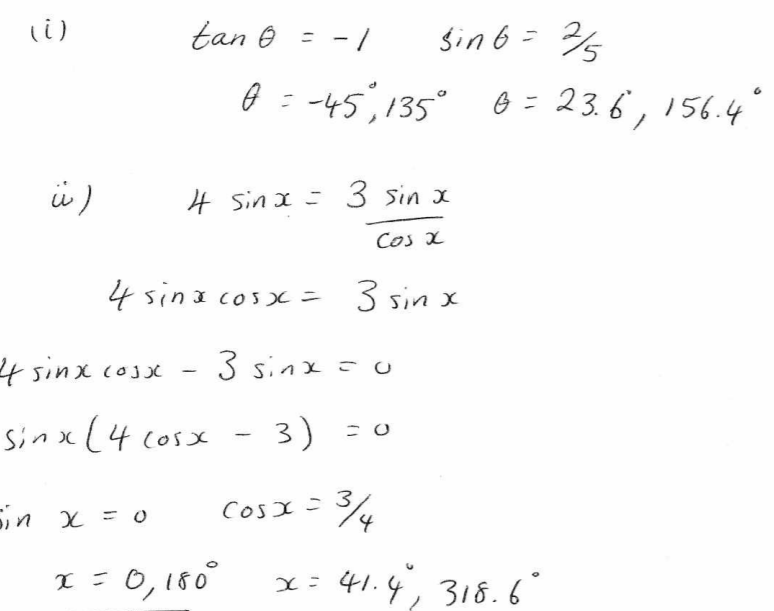 (i) tan θ = -1 sin θ = 2/5
θ = -45°, 135° θ = 23.6°, 156.4°
ii) 4 sin x = 3 sin x / cos x
4 sin x cos x = 3 sin x
4 sin x cos x - 3 sin x = 0
sin x (4 cos x - 3) = 0
sin x = 0 cos x = 3/4
x = 0, 180° x = 41.4°, 318.6°